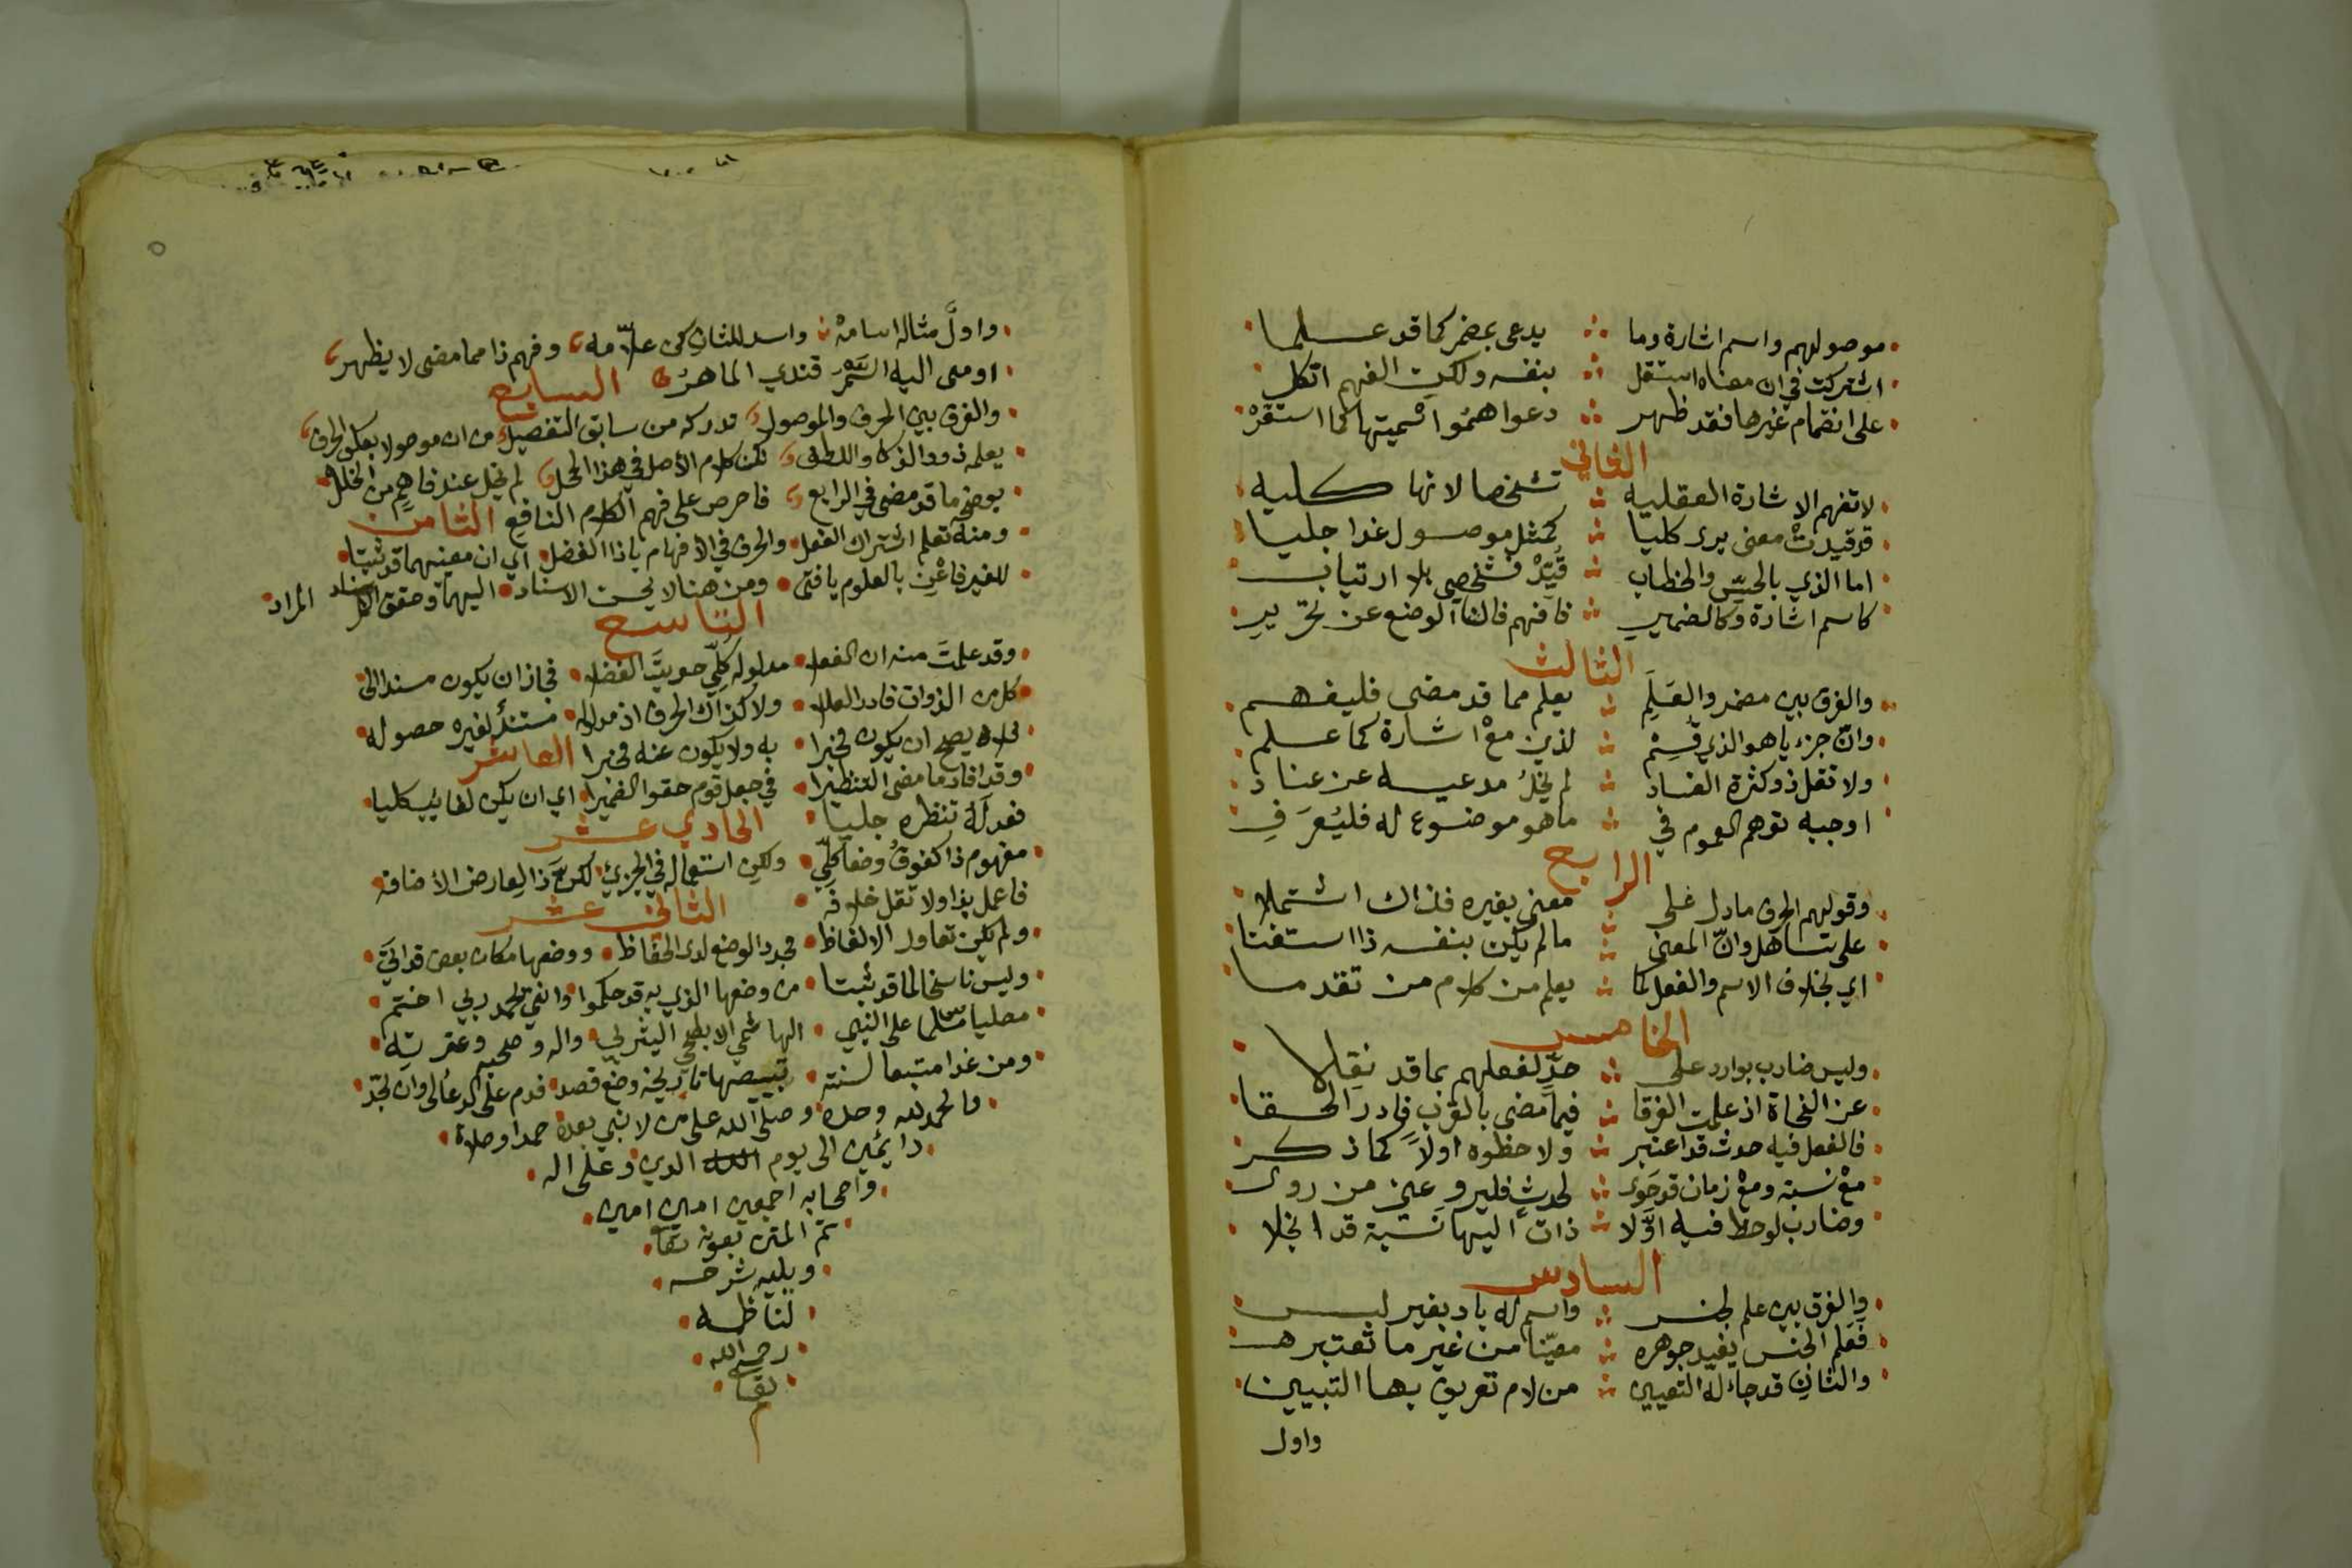 موصولهم واسم اشارة وما ∴ يدعى بمضمر كما قد علما
اشتركت في ان معناه استقل ∴ بنفسه ولكن الفهم اتكل
على انضمام غيرها فقد ظهر ∴ دعوا همُوا اسميتها كما استقرْ
الثاني
لا تفهم الاشارة العقلية ∴ تشخصا لانها كلية
قد قيدتْ معنى يرى كليا ∴ كمثل موصول غدا جليا
اما الذي بالحسِّ والخطاب ∴ قُيِّدْ فشخصي بلا ارتياب
كاسم اشارة وكالضمير ∴ فافهم فالنا الوضع عن تحرير
الثالث
والفرق بين مضمر والعَلَمِ ∴ يعلم مما قد مضى فليفهم
وانّ جزءيا هو الذي قُسِمْ ∴ لذين معْ اشارة كما علم
ولا تقل ذو كثرة الفساد ∴ لم يخلُ مدعيه عن عناد
اوجبه توهم العموم في ∴ ما هو موضوع له فليُعرَفِ
الرابع
وقولهم الحرف ما دل على ∴ معنى بغيره فذاك اشتملا
على تساهل وانّ المعنى ∴ ما لم يكن بنفسه ذا استغنا
اي بخلاف الاسم والفعل كما ∴ يعلم من كلام من تقدما
الخامس
وليس ضارب بوارد على ∴ حدِّ لفعلهم بما قد نقِلا
عن النحاة اذ علمت الفرقا ∴ فيما مضى بالقرب فادر الحقا
فالفعل فيه حدث قد اعتبر ∴ ولاحظوه اولاً كما ذكر
معْ نسبة ومعْ زمان قد حَوى ∴ لحدثٍ فليرو عني من روى
وضارب لوحظ فيه اوّلا ∴ ذات اليها نسبة قد انجلا
السادس
والفرق بين علم لجنس ∴ واسم له باد بغير لبس
فعَلم الجنس يفيد جوهره ∴ معيّنا من غير ما تعتبره
والثانِ قد جاء له التعيين ∴ من لام تعريف بها التبيين
واول
واولَّ مثاله اسامهْ واسد للثانِ كن علاّمه وفهم ذا مما مضى لا يظهر
اومى اليه السَّمَرْقندي الماهرُ السابع
والفرق بين الحرف والموصول تدركه من سابق التفصيل من ان موصولا بعكس الحرف
يعلمه ذوو الذكا واللطف لكن كلام الأصل في هذا المحل لم يخل عند فاهمٍ من الخلل
يوضح ما قد مضى في الرابع فاحرص على فهم الكلام النافع الثامن
ومنه تعلم اشتراك الفعل والحرف في الافهام يا ذا الفضل اي ان معنيهما قد ثبتا
للغير فاعْنِ بالعلوم يا فتى ومن هنا لا يحسن الاسناد اليهما وحقق المراد
التاسع
وقد علمتَ منه ان الفعل مدلوله كلّي حويتَ الفضل فجاز ان يكون مسندا الى
كل من الذوات فادر العلا ولا كذاك الحرف اذ مدلوله مستندٌ لغيره حصوله
يصح ان يكون مخبرا به ولا يكون عنه مخبرا العاشر
وقد افاد ما مضى التنظيرا في جعل قوم حققوا الضميرا اي ان يكن لغائبٍ كليا
فعدلَهُ تنظره جليا الحادي عشر
مفهوم ذا كفوقُ وضعا كلّي ولكن استعماله في الجزئي لكنَّ ذا لعارض الاضافه
فاعمل بذا ولا تقل خلافه الثاني عشر
ولم يكن تعاور الالفاظ مجدد الوضع لدى الحفاظ ووضعها مكان بعض قد اتىَ
وليس ناسخا لما قد ثبتا من وضعها الذي به قد حكموا وانني بحمد ربي اختم
مصليا مسلما على النبي الهاشمي الابطحي اليثربي واله وصحبه وعترته
ومن غدا متبعا لسنته تبييضها تاريخه وضع قصد فدم على الدعالي وان تجدّ
والحمد لله وحده وصلى الله على من لا نبي بعده حمدا وصلاة
دايمين الى يوم الدين وعلى اله
واصحابه اجمعين امين امين
تم المتن بعونه تعا
ويليه شرحه
لناظمه
رحمه الله
تعا
م